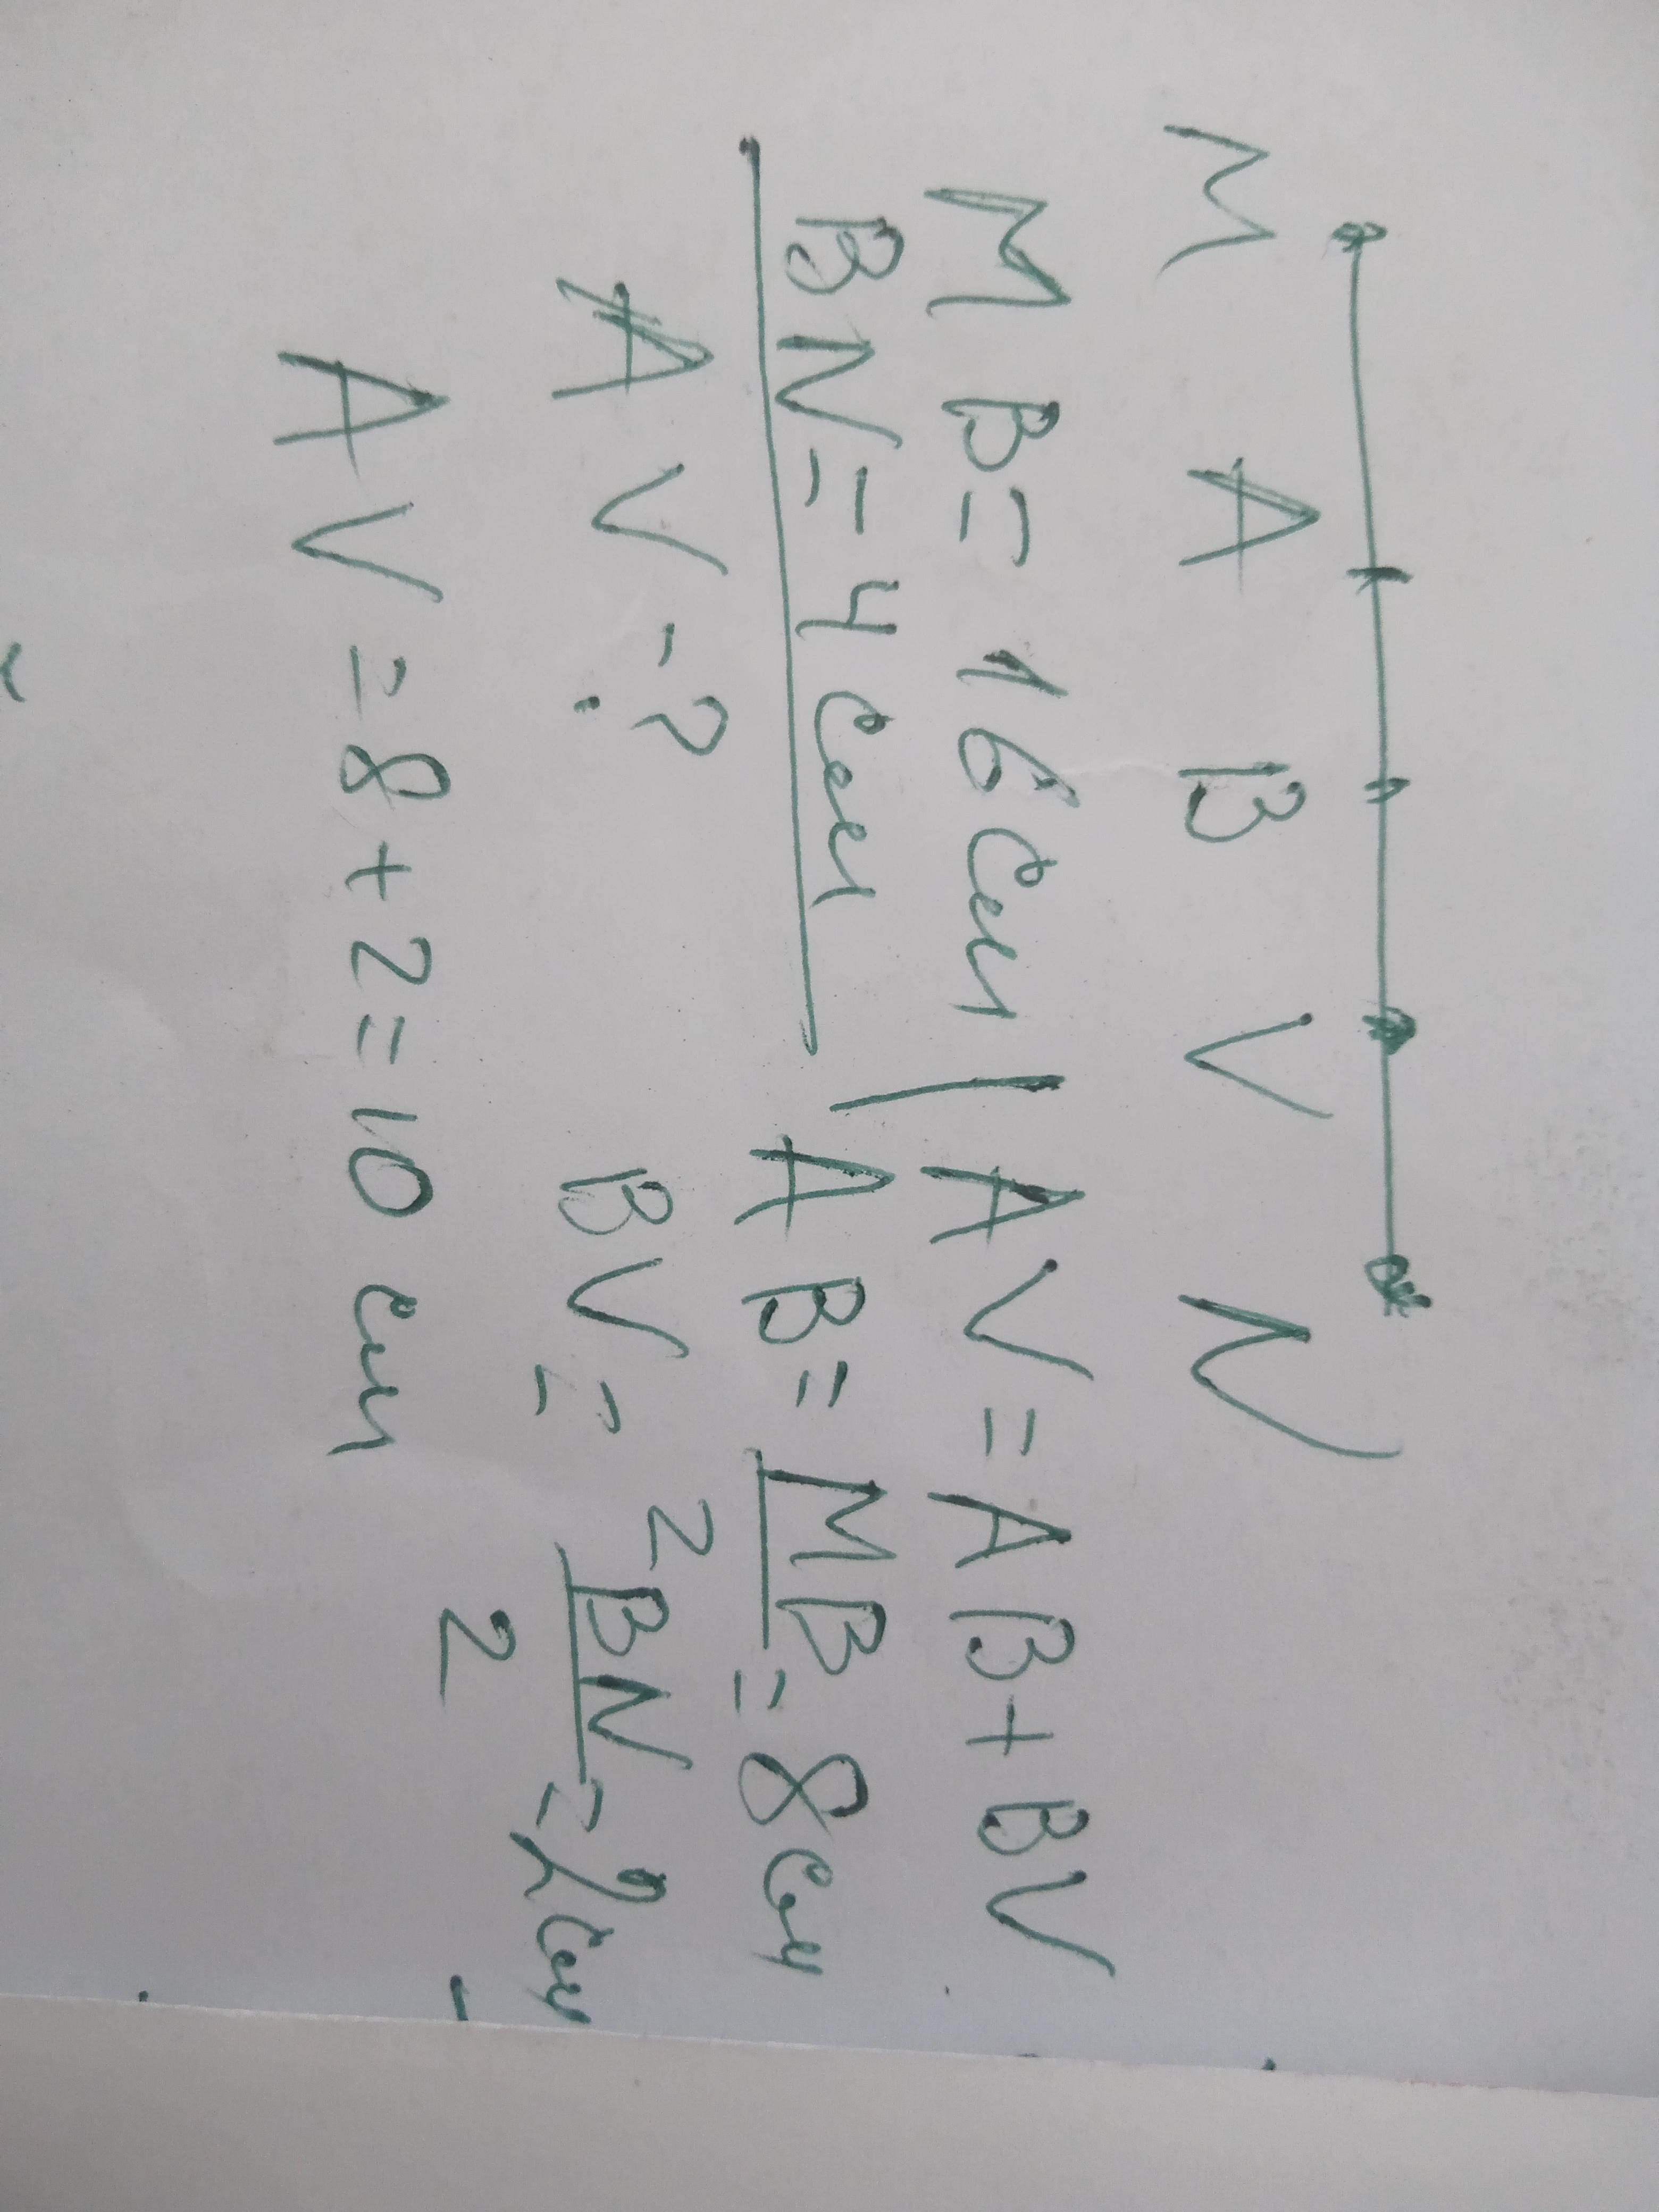 M A B V N
MB = 16 см | AV = AB + BV
BN = 4 см AB = MB/2 = 8 см
AV - ? BV = BN/2 = 2 см
AV = 8 + 2 = 10 см